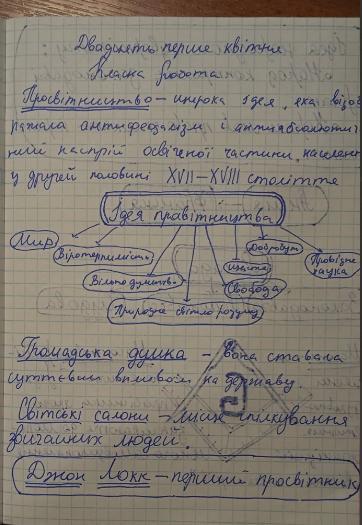 Двадцять перше квітня
Класна робота
Просвітництво – широка ідея, яка відоб
ражала антифеодалізм і антиабсолютис
ний настрій освіченої частини, населення
у другей половині XVII–XVIII століття
Ідея правітництва
Мир
Віротерпимість
Вільнодумство
Природне світло розуму
щастя
Свобода
Добробут
Провізна
наука
Громадська думка – вона ставала
суттєвим виливом на державу.
Світські салони – місце спілкування
звичайних людей.
Джон Локк – перший просвітник